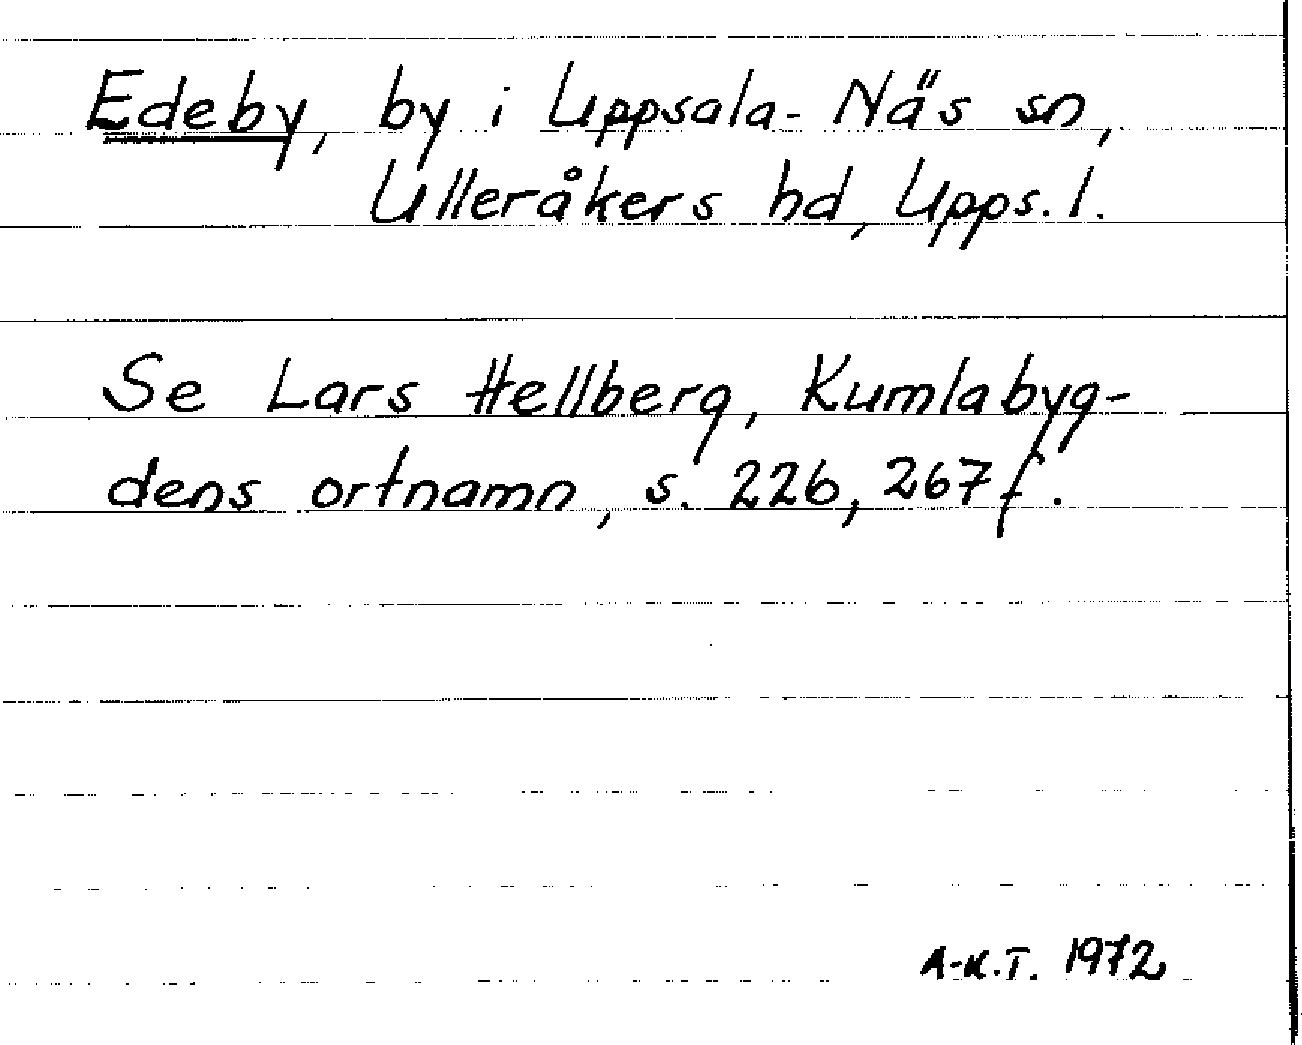 Edeby, by i Uppsala-Näs sn,
Ulleråkers hd, Upps. l.
Se Lars Hellberg, Kumlabyg-
dens ortnamn, s. 226, 267 f.
A-K.T. 1972